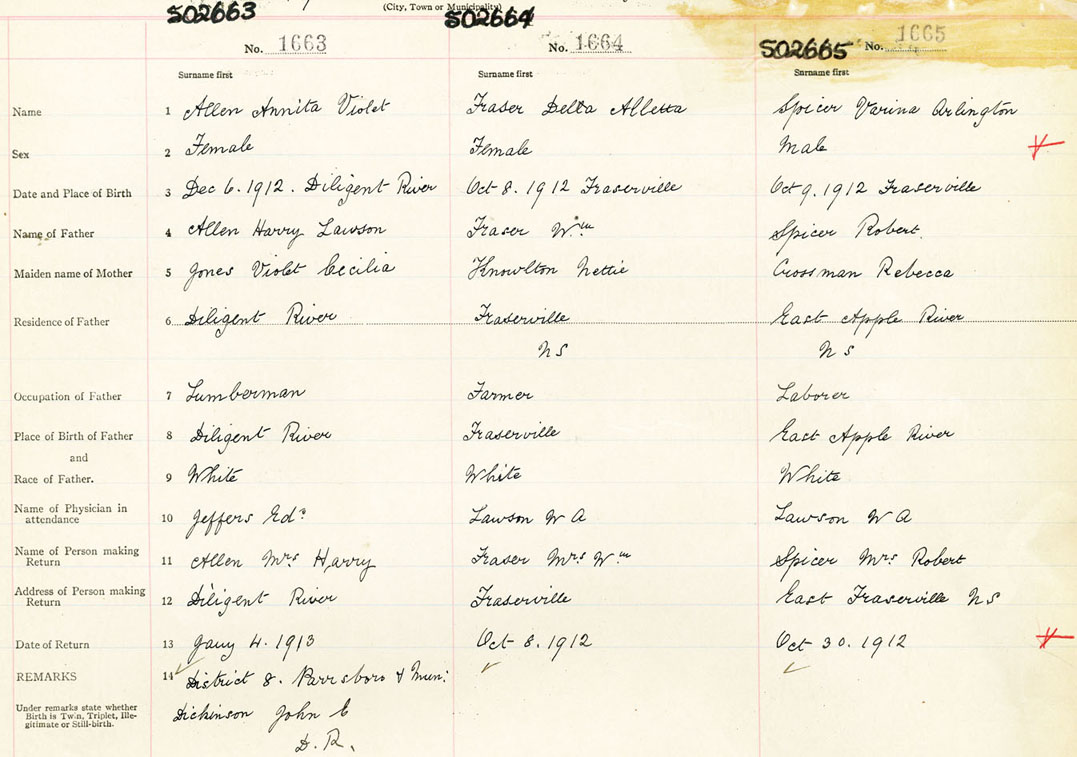 (City, Town or Municipality)
S02663 S02664 S02665
No. 1663 No. 1664 No. 1665
Surname first Surname first Surname first
Name 1 Allen Annita Violet Fraser Delta Alletta Spicer Varina Arlington
Sex 2 Female Female Male
Date and Place of Birth 3 Dec 6. 1912. Diligent River Oct 8. 1912 Fraserville Oct 9. 1912 Fraserville
Name of Father 4 Allen Harry Lawson Fraser Wm Spicer Robert.
Maiden name of Mother 5 Jones Violet Cecilia Knowlton Nettie Crossman Rebecca
Residence of Father 6 Diligent River Fraserville East Apple River
N S N S
Occupation of Father 7 Lumberman Farmer Laborer
Place of Birth of Father 8 Diligent River Fraserville East Apple River
and
Race of Father. 9 White White White
Name of Physician in
attendance 10 Jeffers Ed. Lawson W A Lawson W A
Name of Person making
Return 11 Allen Mrs Harry Fraser Mrs Wm Spicer Mrs Robert
Address of Person making
Return 12 Diligent River Fraserville East Fraserville N S
Date of Return 13 Jany 4. 1913 Oct 8. 1912 Oct 30. 1912
REMARKS 14 District 8. Parrsboro & Mun:
Under remarks state whether
Birth is Twin, Triplet, Ille-
gitimate or Still-birth.
Dickinson John E
D. R.